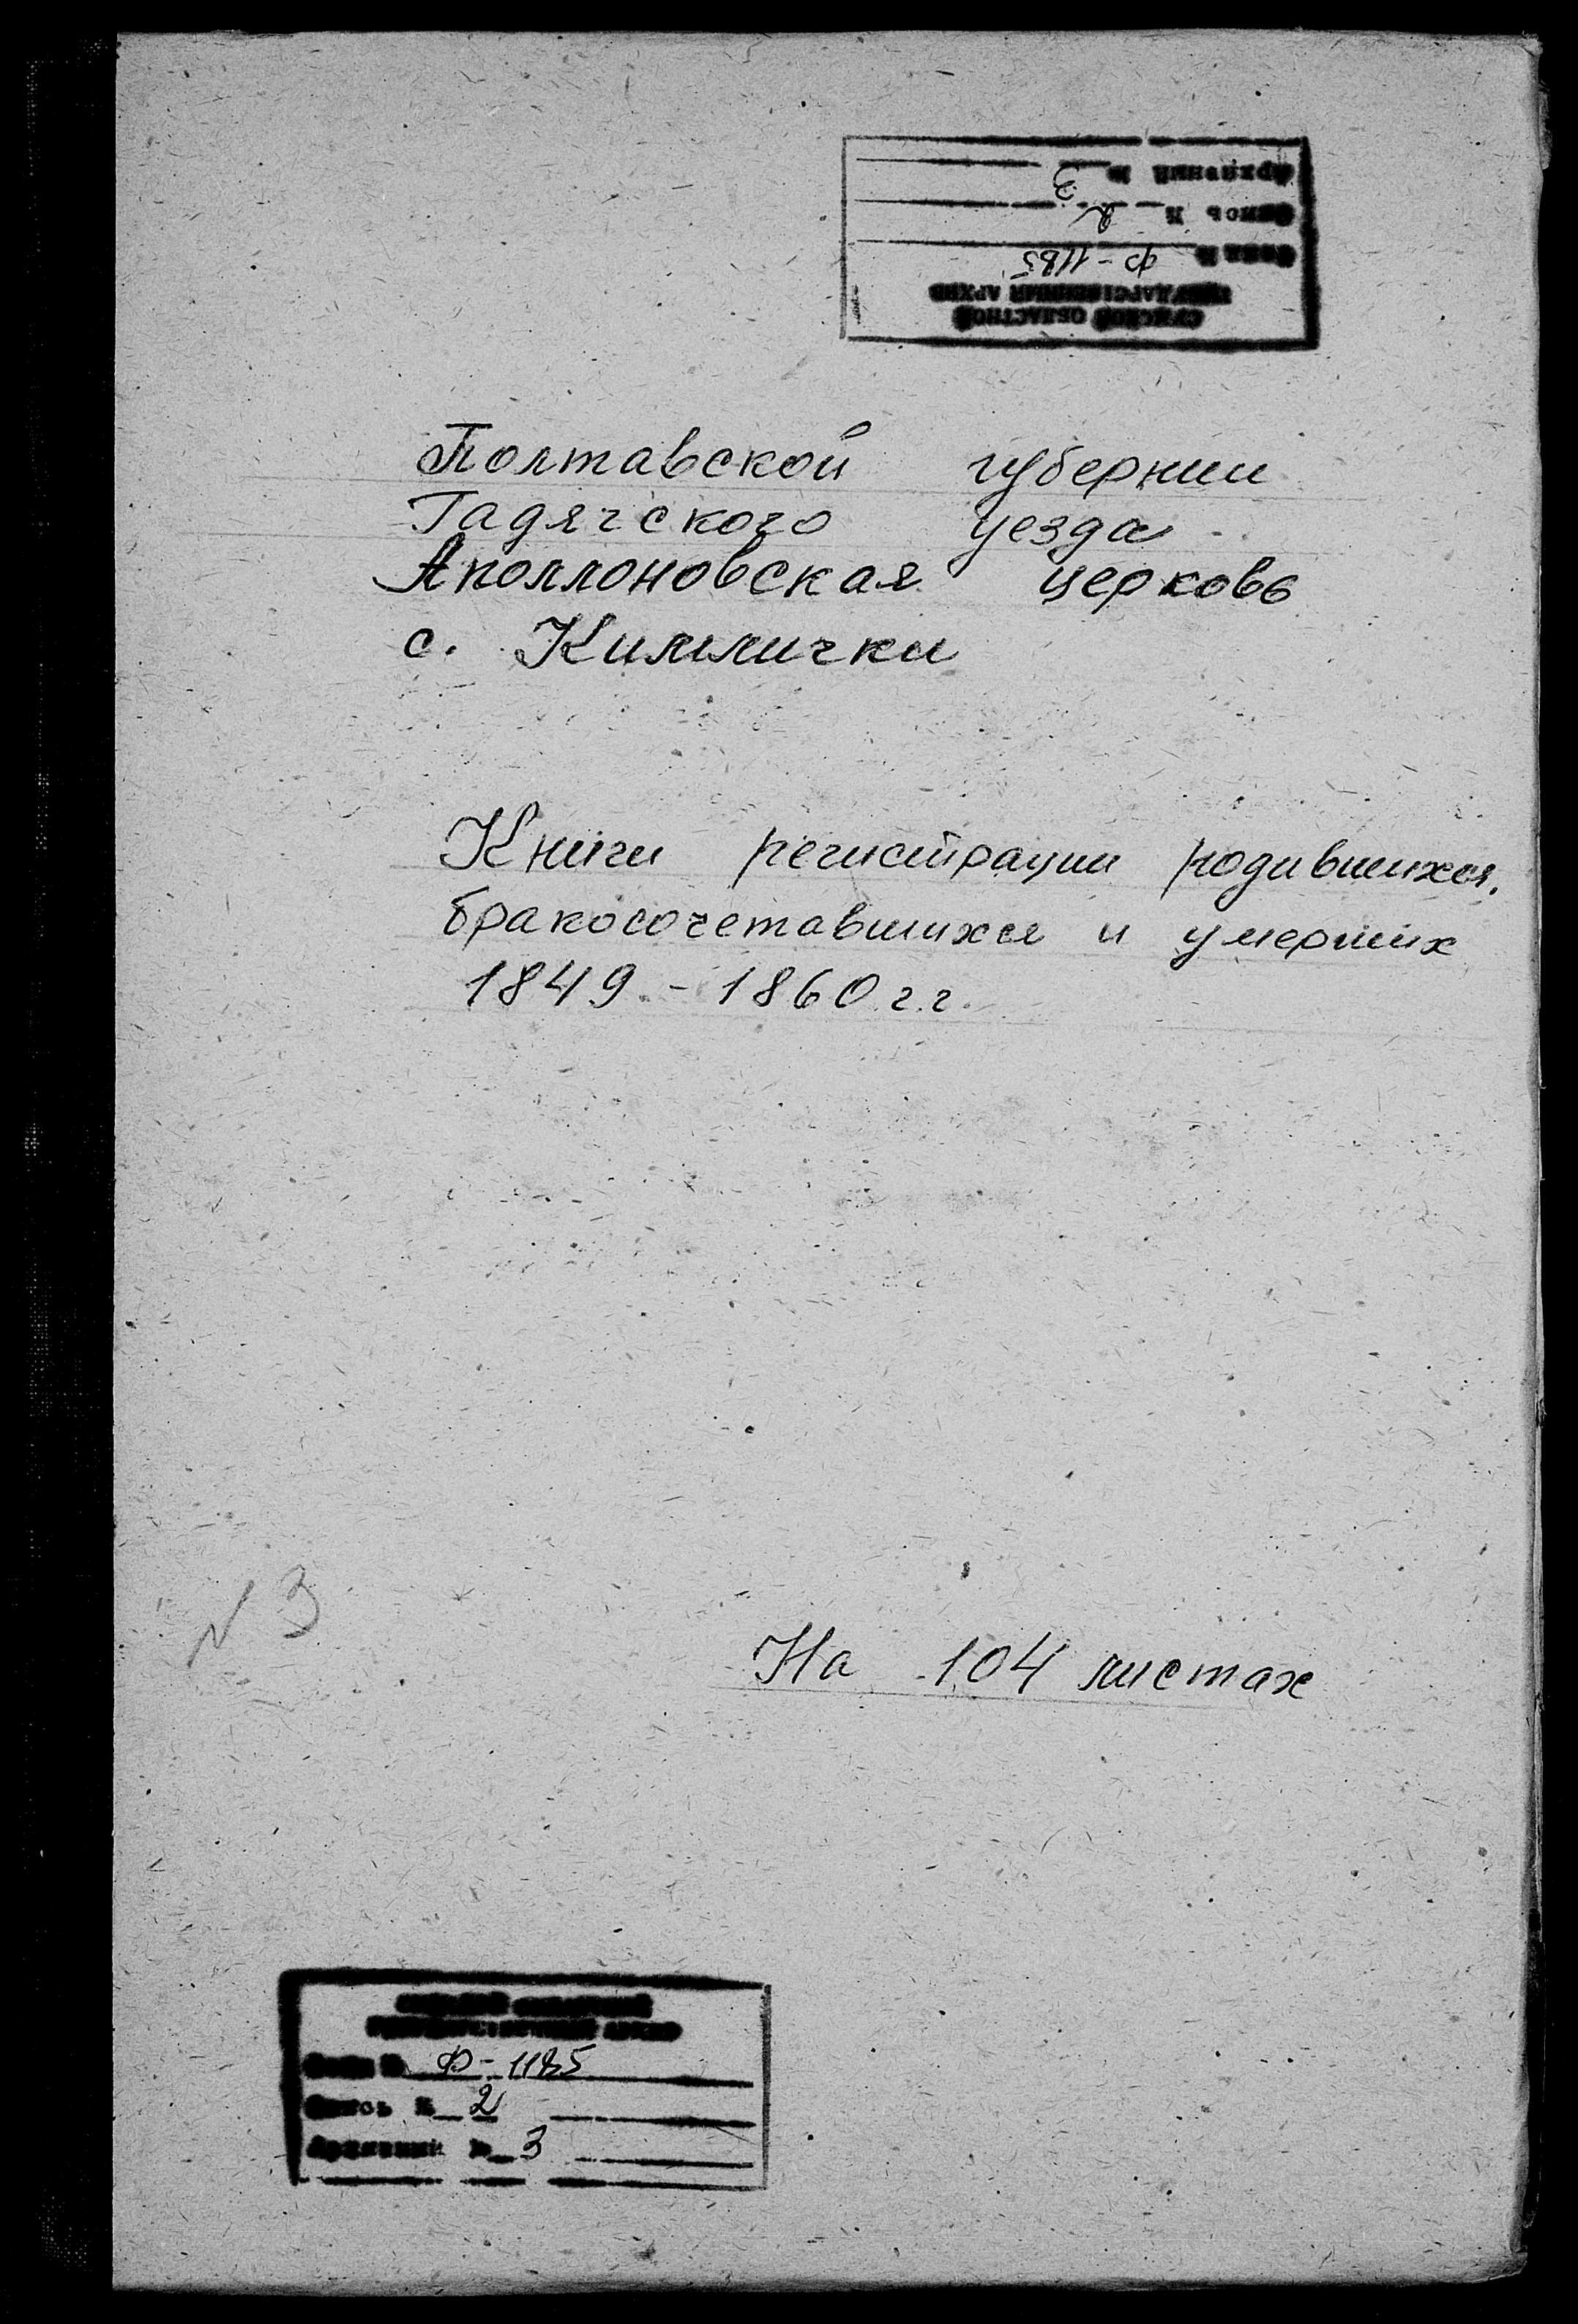 СУМСКОЙ ОБЛАСТНОЙ
ГОСУДАРСТВЕННЫЙ АРХИВ
Фонд № Ф-1185
Опись № 2
Архивный № 3
Полтавской губернии
Гадячского уезда
Аполлоновская церковь
с. Кимличка
Книги регистрации родившихся,
бракосочетавшихся и умерших
1849-1860 г.г.
N 3
На 104 листах
СУМСКОЙ ОБЛАСТНОЙ
ГОСУДАРСТВЕННЫЙ АРХИВ
Фонд № Ф-1185
Опись № 2
Архивный № 3